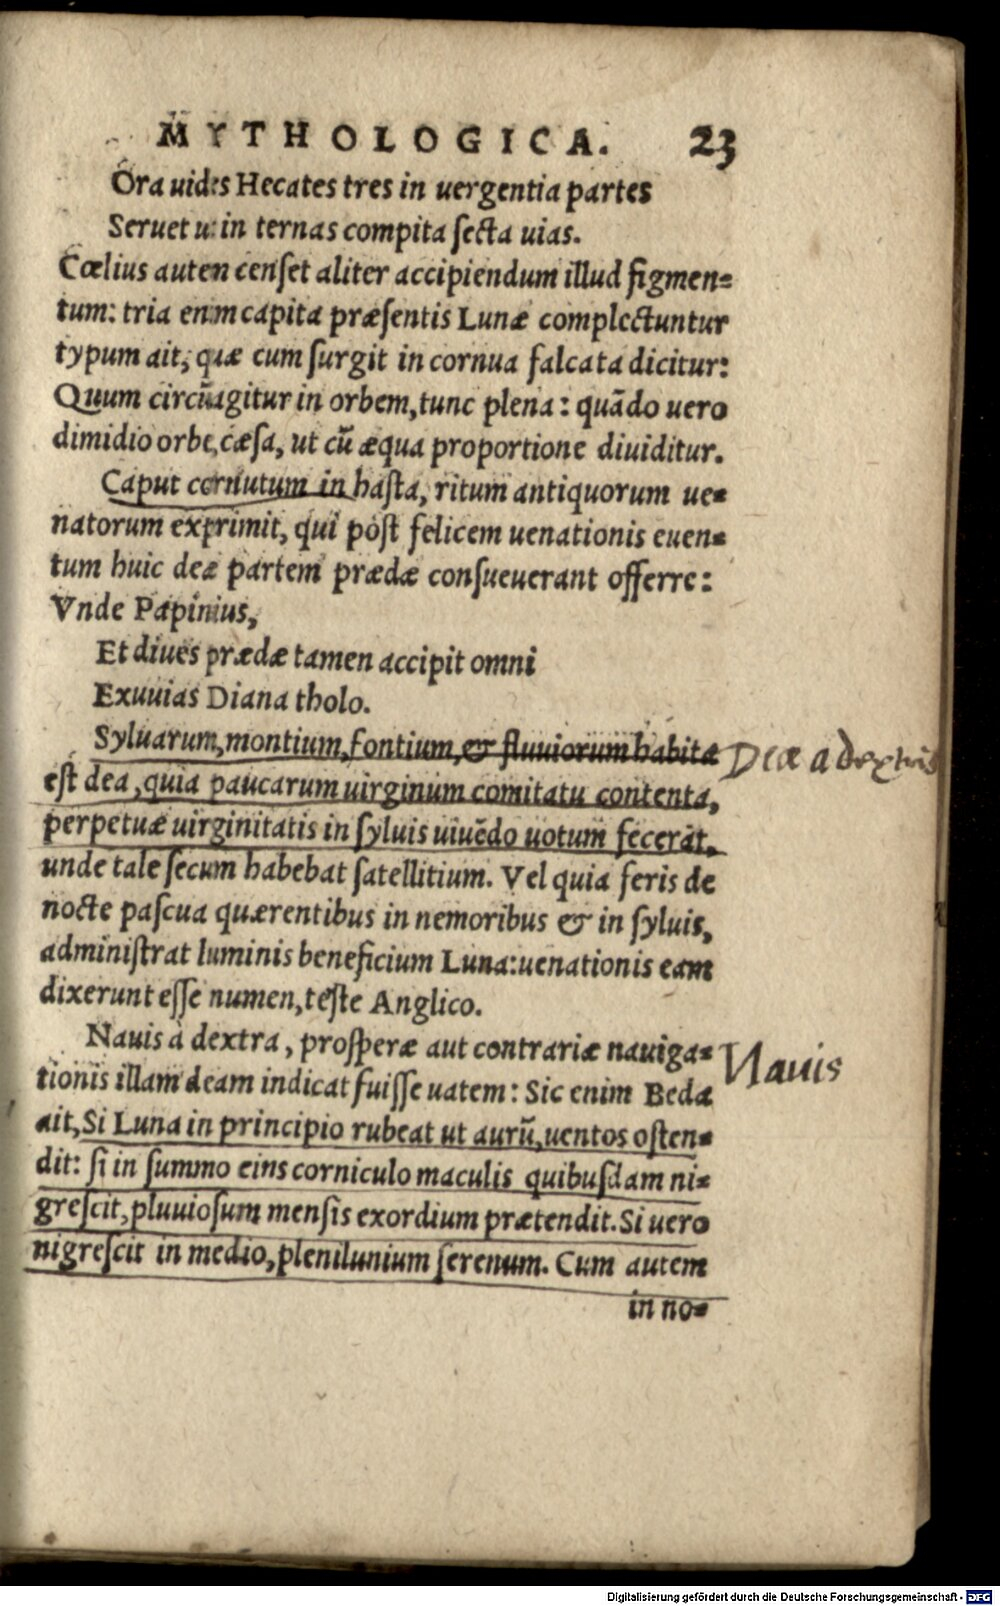 MYTHOLOGICA. 23
Ora uides Hecates tres in uergentia partes
Seruet ut in ternas compita secta uias.
Cœlius autem censet aliter accipiendum illud figmen=
tum: tria enim capita præsentis Lunæ complectuntur
typum ait, quæ cum surgit in cornua falcata dicitur:
Quum circũagitur in orbem, tunc plena: quãdo uero
dimidio orbe, cæsa, ut cũ æqua proportione diuiditur.
Caput cornutum in hasta, ritum antiquorum ue=
natorum exprimit, qui post felicem uenationis euen=
tum huic deæ partem prædæ consueuerant offerre:
Vnde Papinius,
Et diues prædæ tamen accipit omni
Exuuias Diana tholo.
Syluarum, montium, fontium, & fluuiorum habitæ Deæ a dextris
est dea, quia paucarum uirginum comitatu contenta,
perpetuæ uirginitatis in syluis uiuẽdo uotum fecerat,
unde tale secum habebat satellitium. Vel quia feris de
nocte pascua quærentibus in nemoribus & in syluis,
administrat luminis beneficium Luna: uenationis eam
dixerunt esse numen, teste Anglico.
Nauis à dextra, prosperæ aut contrariæ nauiga= Nauis
tionis illam deam indicat fuisse uatem: Sic enim Beda
ait, Si Luna in principio rubeat ut aurũ, uentos osten=
dit: si in summo eius corniculo maculis quibusdam ni=
grescit, pluuiosum mensis exordium prætendit. Si uero
nigrescit in medio, plenilunium serenum. Cum autem
in no=
Digitalisierung gefördert durch die Deutsche Forschungsgemeinschaft - DFG